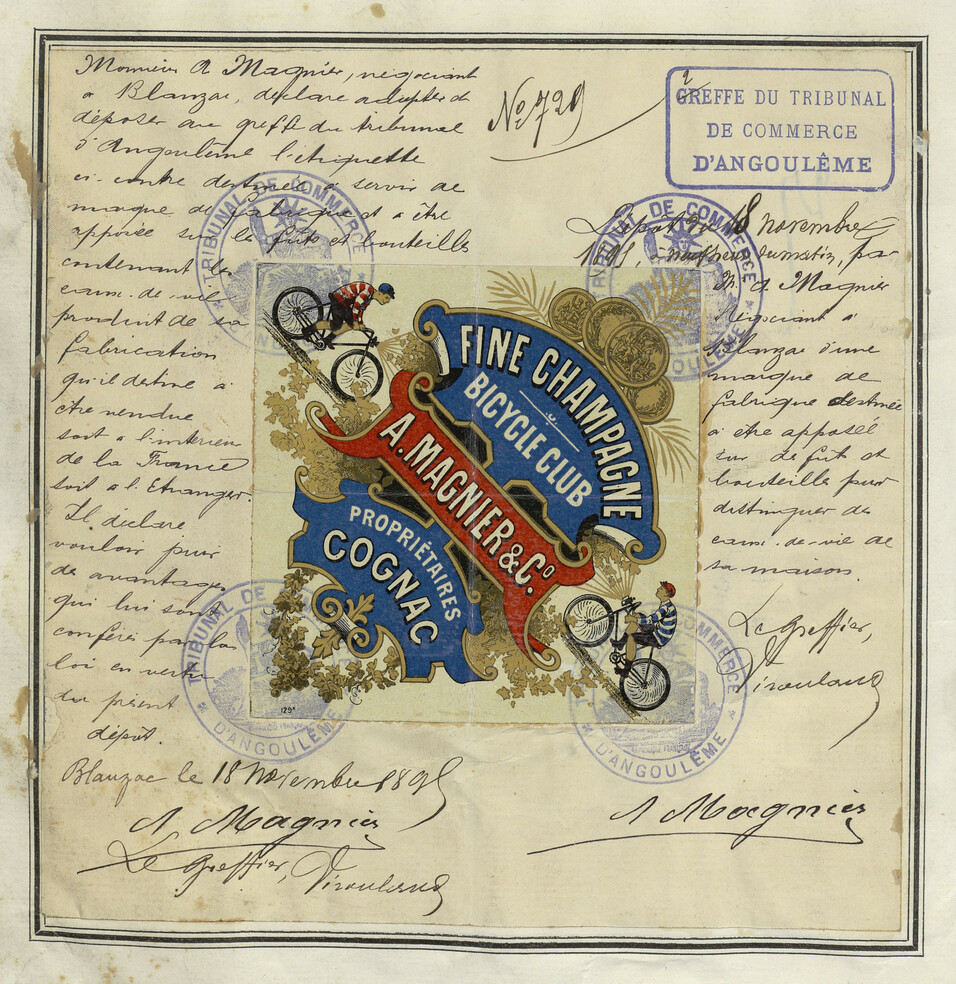 Monsieur A Magnier, négociant
à Blanzac, déclare adopter et
déposer au greffe du tribunal
d'Angoulême l'étiquette
ci-contre destinée à servir de
marque de fabrique et à être
apposée sur les fûts et bouteilles
contenant les
eaux-de-vie
produit de sa
fabrication
qu'il destine à
être vendue
soit à l'intérieur
de la France
soit à l'Etranger.
Il déclare
vouloir jouir
de avantages
qui lui sont
conférés par la
loi en vertu
du présent
dépôt.
Blanzac le 18 Novembre 1895
A. Magnier
Le Greffier, Virouland
No 729
2
GREFFE DU TRIBUNAL
DE COMMERCE
D'ANGOULÊME
Dépôt du 18 novembre
1895, à neuf heures du matin, par
M. A. Magnier
Négociant à
Blanzac d'une
marque de
fabrique destinée
à être apposée
sur les fût et
bouteille pour
distinguer des
eaux-de-vie de
sa maison.
Le Greffier,
Virouland
A Magnier
FINE CHAMPAGNE
BICYCLE CLUB
A. MAGNIER & Co.
PROPRIÉTAIRES
COGNAC
129A
TRIBUNAL DE COMMERCE
TRIBUNAL DE COMMERCE
D'ANGOULÊME
TRIBUNAL DE
D'ANGOULÊME
COMMERCE
D'ANGOULÊME